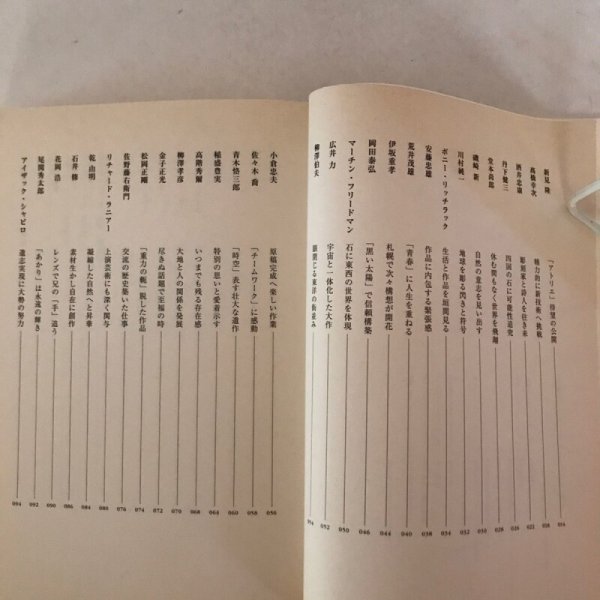 新見 隆 「アトリエ」待望の公開 016
高橋幸次 精力的に新技術へ挑戦 018
酒井忠康 彫刻家と詩人を往き来 022
丹下健三 四国の石に可能性追究 026
堂本尚郎 休む間もなく世界を飛翔 028
磯崎 新 自然の意志を見い出す 030
川村純一 地球を彫る閃きと符号 032
ボニー・リッチラック 生活と作品を垣間見る 034
安藤忠雄 作品に内包する緊張感 038
荒井茂雄 「青春」に人生を重ねる 040
伊坂重孝 札幌で次々構想が開花 044
岡田泰弘 「黒い太陽」で信頼構築 046
マーチン・フリードマン 石に東西の世界を体現 050
広井 力 宇宙と一体化した大作 052
柳澤伯夫 054
小倉忠夫 原稿完成へ楽しい作業 056
佐々木喬 「チームワーク」に感動 058
青木悠三郎 「時空」表す壮大な遺作 060
稲盛豊実 特別の思いと愛着示す 064
高階秀爾 いつまでも残る存在感 068
柳澤孝彦 大地と人の関係を発展 070
金子正光 尽きぬ話題で至福の時 072
松岡正剛 「重力の軛」脱した作品 074
佐野藤右衛門 交流の歴史築いた仕事 076
リチャード・ラニアー 上演芸術にも深く関与 080
乾 由明 凝縮した自然へと昇華 084
石井 修 素材生かし自在に創作 086
花岡 浩 レンズで兄の「手」追う 090
尾関秀太郎 「あかり」は永遠の輝き 092
アイザック・シャピロ 遺志実現に大勢の努力 094